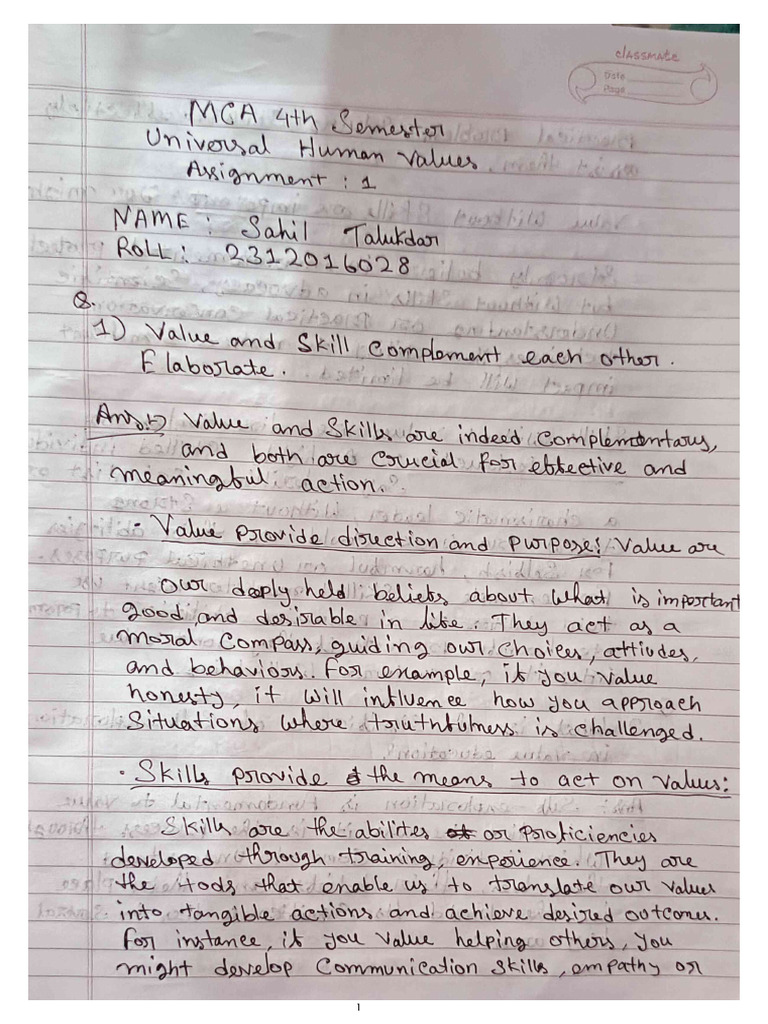 classmate
Date
Page
MCA 4th Semester
Universal Human Values
Assignment : 1
NAME : Sahil Talukdar
ROLL : 2312016028
Q.
1) Value and Skill Complement each other.
Elaborate.
Ans:-) Value and Skills are indeed Complementary,
and both are crucial for effective and
meaningful action.
• Value provide direction and purpose: Value are
our deeply held beliefs about what is important
good and desirable in life. They act as a
moral compass, guiding our choices, attiudes,
and behaviors. For example, if you value
honesty, it will influence how you approach
situations where truthfulness is challenged.
• Skills provide the means to act on values:
Skills are the abilites or proficiencies
developed through training, experience. They are
the tools that enable us to translate our values
into tangible actions and achieve desired outcomes.
For instance, if you value helping others, you
might develop Communication Skills, empathy or
1